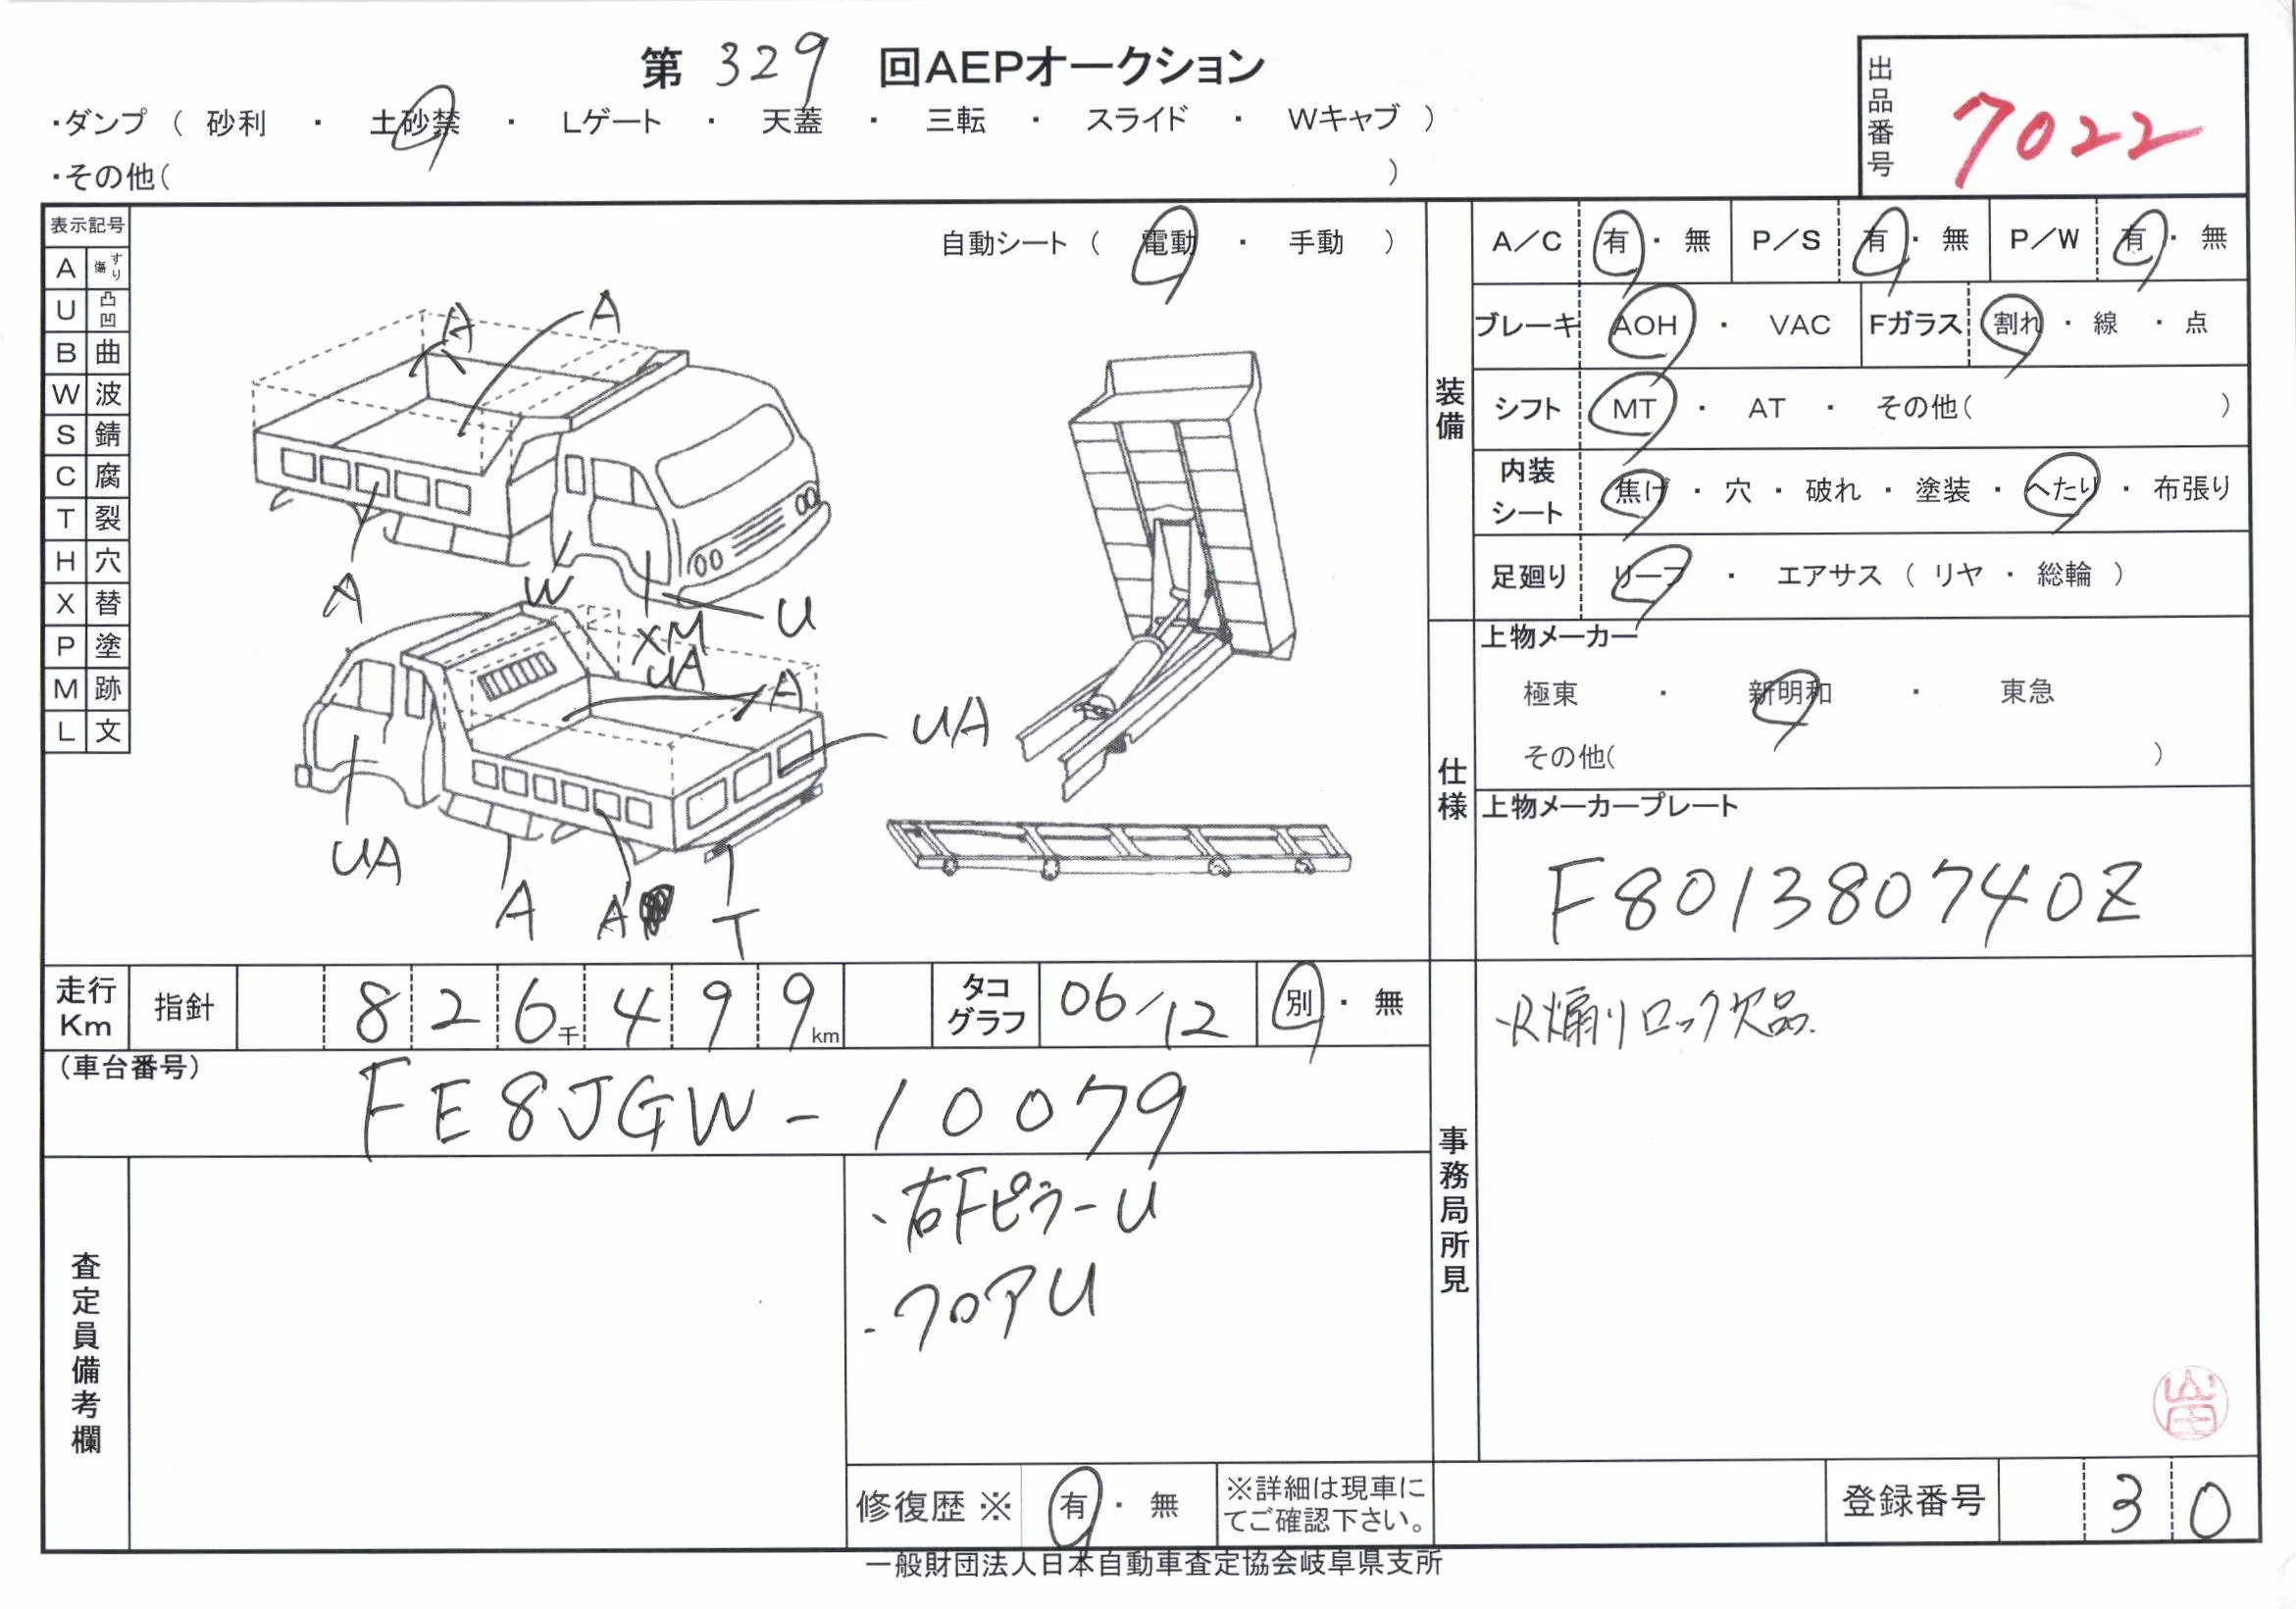 第 329 回AEPオークション
出品番号 7022
・ダンプ ( 砂利 ・ 土砂禁 ・ Lゲート ・ 天蓋 ・ 三転 ・ スライド ・ Wキャブ )
・その他( )
表示記号
A すり傷
U 凸凹
B 曲
W 波
S 錆
C 腐
T 裂
H 穴
X 替
P 塗
M 跡
L 文
自動シート ( 電動 ・ 手動 )
A
A
A
W
U
XM
UA
A
UA
UA
A
A
T
装備
A/C 有 ・ 無 P/S 有 ・ 無 P/W 有 ・ 無
ブレーキ AOH ・ VAC Fガラス 割れ ・ 線 ・ 点
シフト MT ・ AT ・ その他( )
内装シート 焦げ ・ 穴 ・ 破れ ・ 塗装 ・ へたり ・ 布張り
足廻り リーフ ・ エアサス ( リヤ ・ 総輪 )
仕様
上物メーカー
極東 ・ 新明和 ・ 東急
その他( )
上物メーカープレート
F801380740Z
走行Km 指針 826千499km タコグラフ 06/12 別 ・ 無
(車台番号)
FE8JGW-10079
査定員備考欄
・右FピラーU
・フロアU
修復歴※ 有 ・ 無 ※詳細は現車にてご確認下さい。
事務局所見
・R煽りロック欠品.
登録番号 30
一般財団法人日本自動車査定協会岐阜県支所